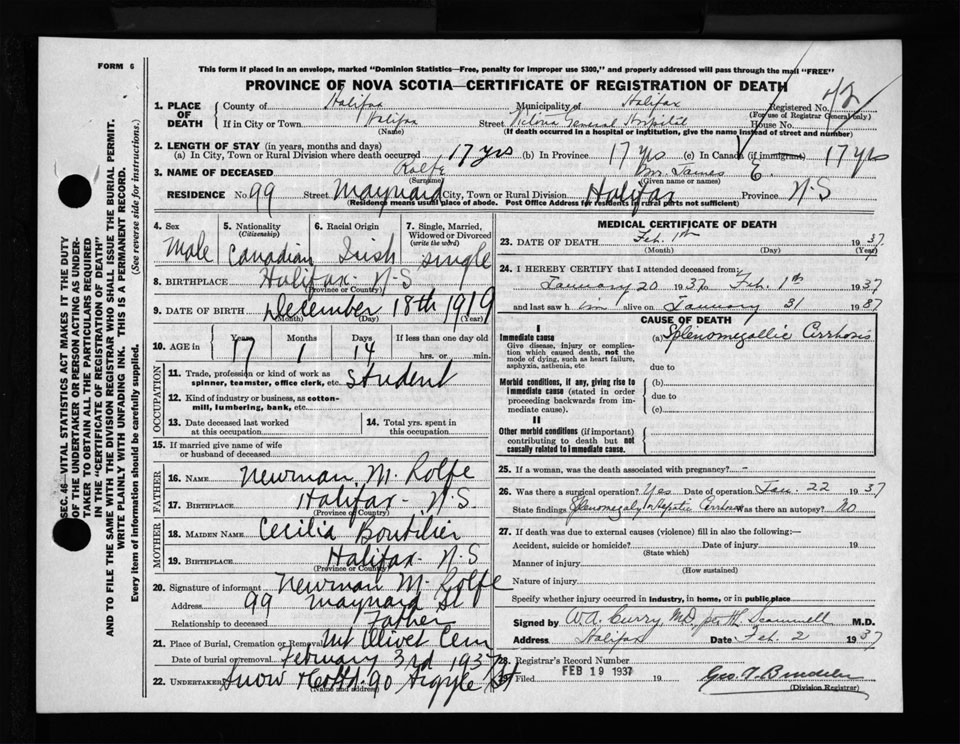 FORM 6
This form if placed in an envelope, marked "Dominion Statistics—Free, penalty for improper use $300," and properly addressed will pass through the mail "FREE"
PROVINCE OF NOVA SCOTIA—CERTIFICATE OF REGISTRATION OF DEATH
1. PLACE OF DEATH
County of Halifax Municipality of Halifax Registered No. 42
(For use of Registrar General only)
If in City or Town Halifax Street Victoria General Hospital House No.
(Name) (If death occurred in a hospital or institution, give the name instead of street and number)
2. LENGTH OF STAY (in years, months and days)
(a) In City, Town or Rural Division where death occurred 17 yrs (b) In Province 17 yrs (c) In Canada (if immigrant) 17 yrs
3. NAME OF DECEASED Rolfe James E.
(Surname) (Given name or names)
RESIDENCE No. 99 Street Maynard City, Town or Rural Division Halifax Province N-S
(Residence means usual place of abode. Post Office Address for residents in rural parts not sufficient)
4. Sex Male
5. Nationality (Citizenship) Canadian
6. Racial Origin Irish
7. Single, Married, Widowed or Divorced (write the word) single
8. BIRTHPLACE Halifax- N-S
(Province or Country)
9. DATE OF BIRTH December 18th 1919
(Month) (Day) (Year)
10. AGE in Years 17 Months 1 Days 14 If less than one day old hrs. or min.
OCCUPATION
11. Trade, profession or kind of work as spinner, teamster, office clerk, etc. student
12. Kind of industry or business, as cotton-mill, lumbering, bank, etc.
13. Date deceased last worked at this occupation
14. Total yrs. spent in this occupation
15. If married give name of wife or husband of deceased
FATHER
16. NAME Newman M. Rolfe
17. BIRTHPLACE Halifax- N.S.
(Province or Country)
MOTHER
18. MAIDEN NAME Cecilia Boutilier
19. BIRTHPLACE Halifax- N-S
(Province or Country)
20. Signature of informant Newman M. Rolfe
Address 99 Maynard St
Relationship to deceased Father
21. Place of Burial, Cremation or Removal Mt Olivet Cem
Date of burial or removal February 3rd 1937
22. UNDERTAKER Snow 90 Argyle St
(Name and address)
MEDICAL CERTIFICATE OF DEATH
23. DATE OF DEATH Feb. 1th 1937
(Month) (Day) (Year)
24. I HEREBY CERTIFY that I attended deceased from:
January 20 1937 to Feb. 1th 1937
and last saw him alive on January 31 1937
CAUSE OF DEATH
I
Immediate cause
Give disease, injury or complication which caused death, not the mode of dying, such as heart failure, asphyxia, asthenia, etc.
(a) Splenomegallic Cirrhosis
due to
Morbid conditions, if any, giving rise to immediate cause (stated in order proceeding backwards from immediate cause).
(b)
due to
(c)
II
Other morbid conditions (if important) contributing to death but not causally related to immediate cause.
25. If a woman, was the death associated with pregnancy? -
26. Was there a surgical operation? Yes Date of operation Jan. 22 1937
State findings Splenomegaly Hepatic Cirrhosis Was there an autopsy? No
27. If death was due to external causes (violence) fill in also the following:—
Accident, suicide or homicide? Date of injury 19
(State which)
Manner of injury
(How sustained)
Nature of injury
Specify whether injury occurred in industry, in home, or in public place
Signed by W.A. Curry, M.D. per M.D.
Address Halifax Date Feb. 2 1937
28. Registrar's Record Number
Filed FEB 19 1937 19
Geo. A.
(Division Registrar)
SEC. 46—VITAL STATISTICS ACT MAKES IT THE DUTY
OF THE UNDERTAKER OR PERSON ACTING AS UNDER-
TAKER TO OBTAIN ALL THE PARTICULARS REQUIRED
IN THE "CERTIFICATE OF REGISTRATION OF DEATH"
AND TO FILE THE SAME WITH THE DIVISION REGISTRAR WHO SHALL ISSUE THE BURIAL PERMIT.
WRITE PLAINLY WITH UNFADING INK. THIS IS A PERMANENT RECORD.
Every item of information should be carefully supplied. (See reverse side for instructions.)